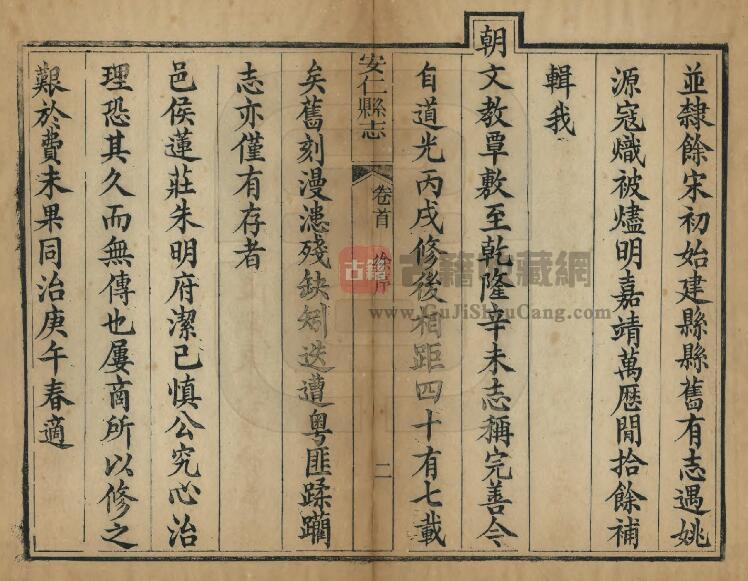 並隸餘宋初始建縣縣舊有志遇姚
源寇熾被燼明嘉靖萬歷間拾餘補
輯我
朝文教覃敷至乾隆辛未志稱完善今
自道光丙戌修後相距四十有七載
安仁縣志
卷首
序
二
矣舊刻漫漶殘缺矧迭遭粵匪蹂躪
志亦僅有存者
邑侯蓮莊朱明府潔己慎公究心治
理恐其久而無傳也屢商所以修之
艱於費未果同治庚午春適
古籍
古籍收藏網
www.GuJiShouCang.com